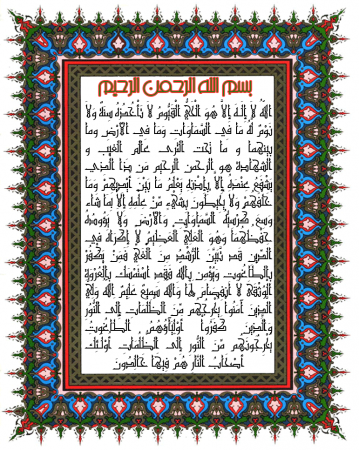 بسم الله الرحمن الرحيم
الله لا إله إلا هو الحي القيوم لا تأخذه سنة ولا
نوم له ما في السماوات وما في الأرض وما
بينهما و ما تحت الثرى عالم الغيب و
الشهادة هو الرحمن الرحيم من ذا الذي
يشفع عنده إلا بإذنه يعلم ما بين أيديهم وما
خلفهم ولا يحيطون بشيء من علمه إلا بما شاء
وسع كرسيه السماوات والأرض ولا يؤوده
حفظهما وهو العلي العظيم لا إكراه في
الدين قد تبين الرشد من الغي فمن يكفر
بالطاغوت ويؤمن بالله فقد استمسك بالعروة
الوثقى لا انفصام لها والله سميع عليم الله ولي
الذين آمنوا يخرجهم من الظلمات إلى النور
والذين كفروا أولياؤهم الطاغوت
يخرجونهم من النور إلى الظلمات أولئك
أصحاب النار هم فيها خالدون